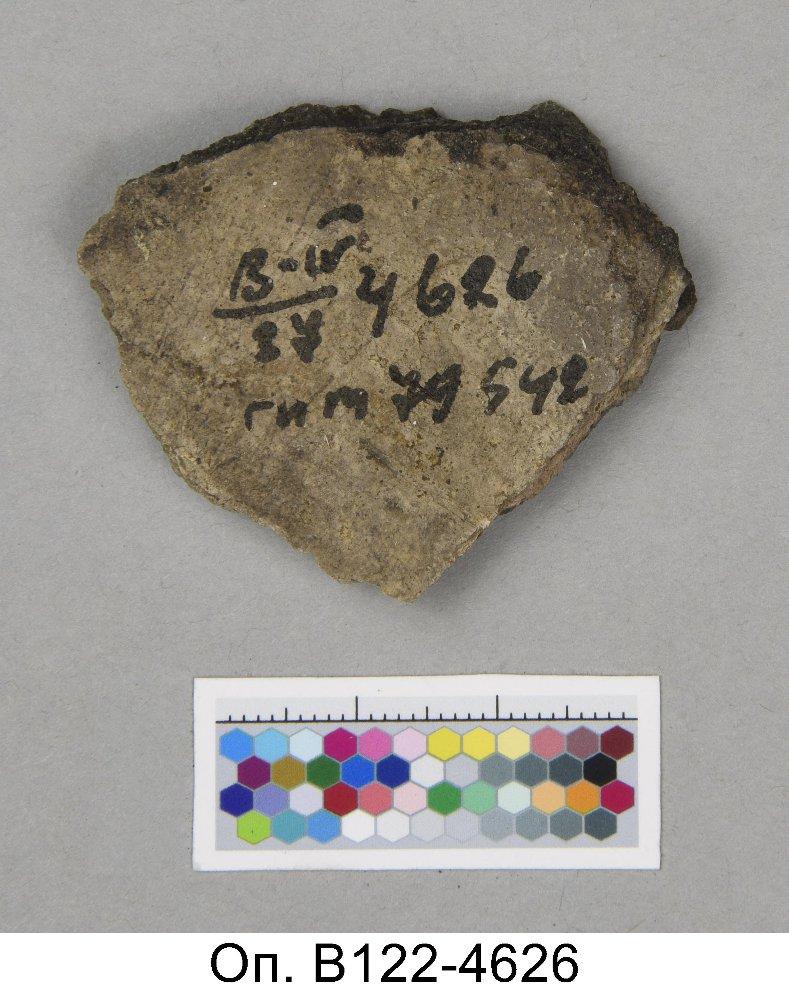 В-IV 4626
37
гим 79 542
Оп. В122-4626